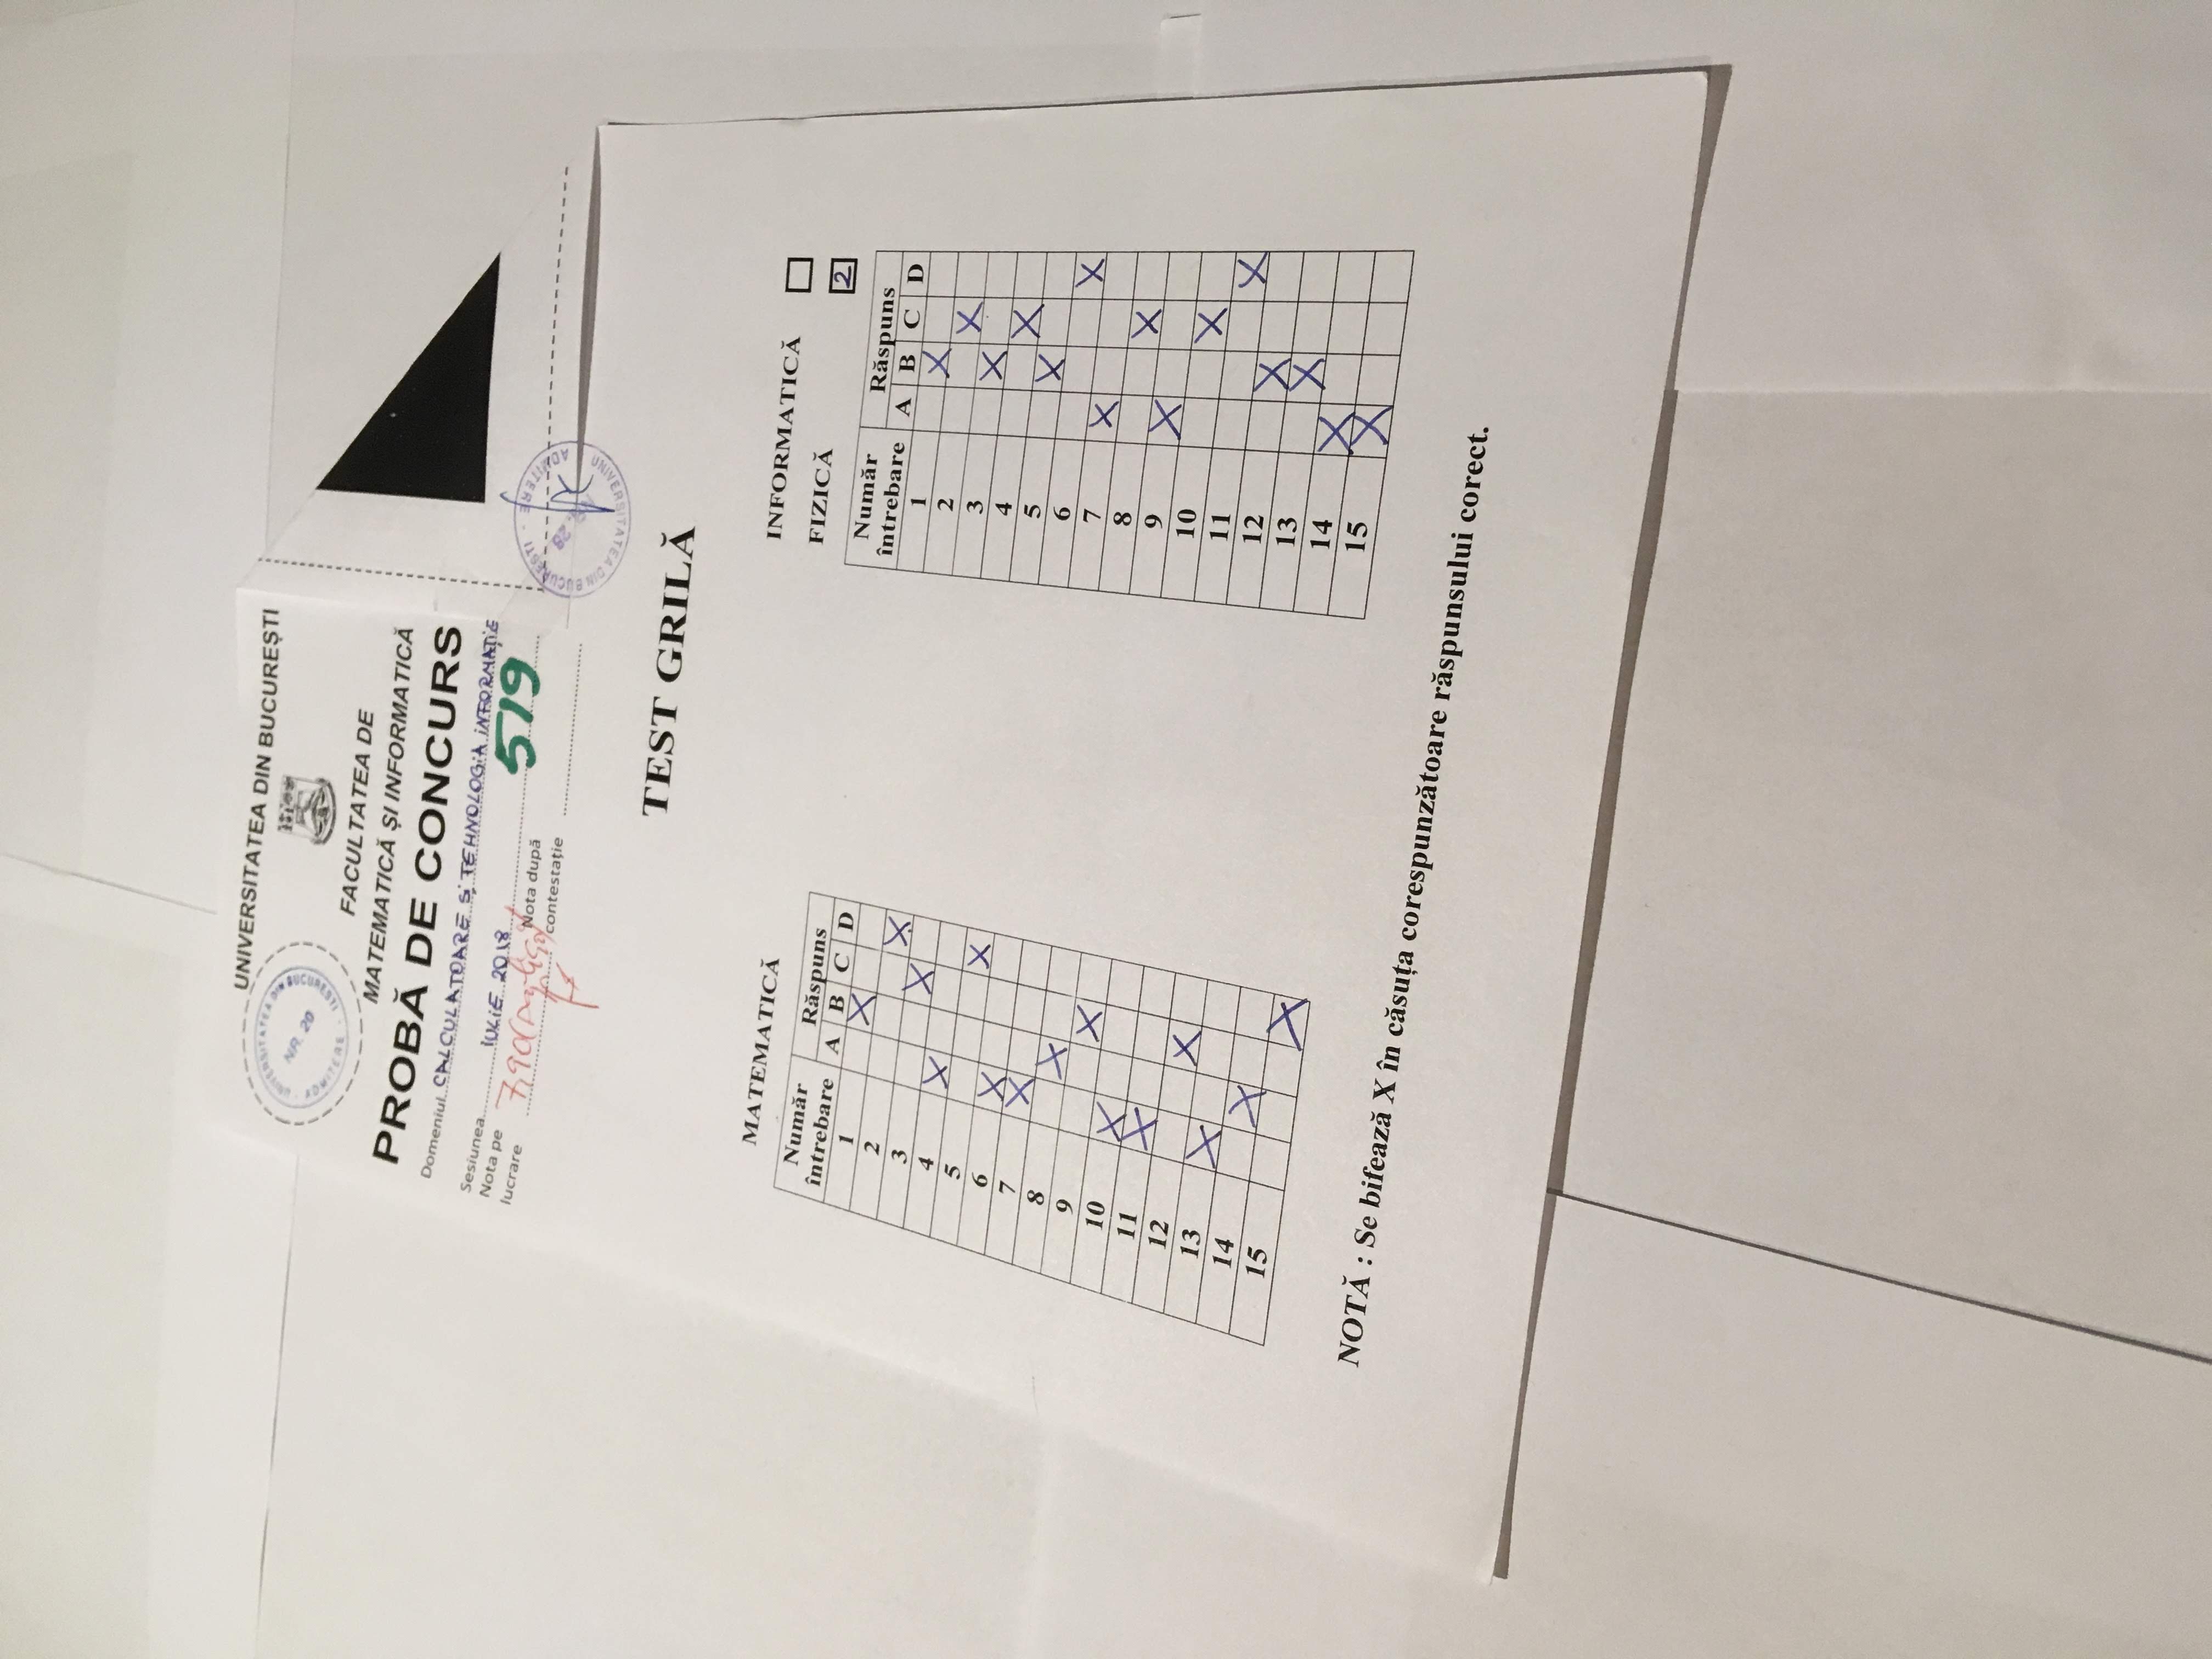 UNIVERSITATEA DIN BUCUREȘTI
UNIVERSITATEA DIN BUCUREȘTI
ADMITERE
NR. 20
FACULTATEA DE
MATEMATICĂ ȘI INFORMATICĂ
PROBĂ DE CONCURS
Domeniul CALCULATOARE ȘI TEHNOLOGIA INFORMAȚIE
Sesiunea IULIE 2018
519
Nota pe lucrare 7,90
Nota după contestație
UNIVERSITATEA DIN BUCUREȘTI
ADMITERE
28
TEST GRILĂ
MATEMATICĂ
Număr întrebare Răspuns
A B C D
1 X
2 X
3 X
4 X
5 X
6 X
7 X
8 X
9 X
10 X
11 X
12 X
13 X
14 X
15 X
INFORMATICĂ
FIZICĂ 2
Număr întrebare Răspuns
A B C D
1 X
2 X
3 X
4 X
5 X
6 X
7 X
8 X
9 X
10 X
11 X
12 X
13 X
14 X
15 X
NOTĂ : Se bifează X în căsuța corespunzătoare răspunsului corect.